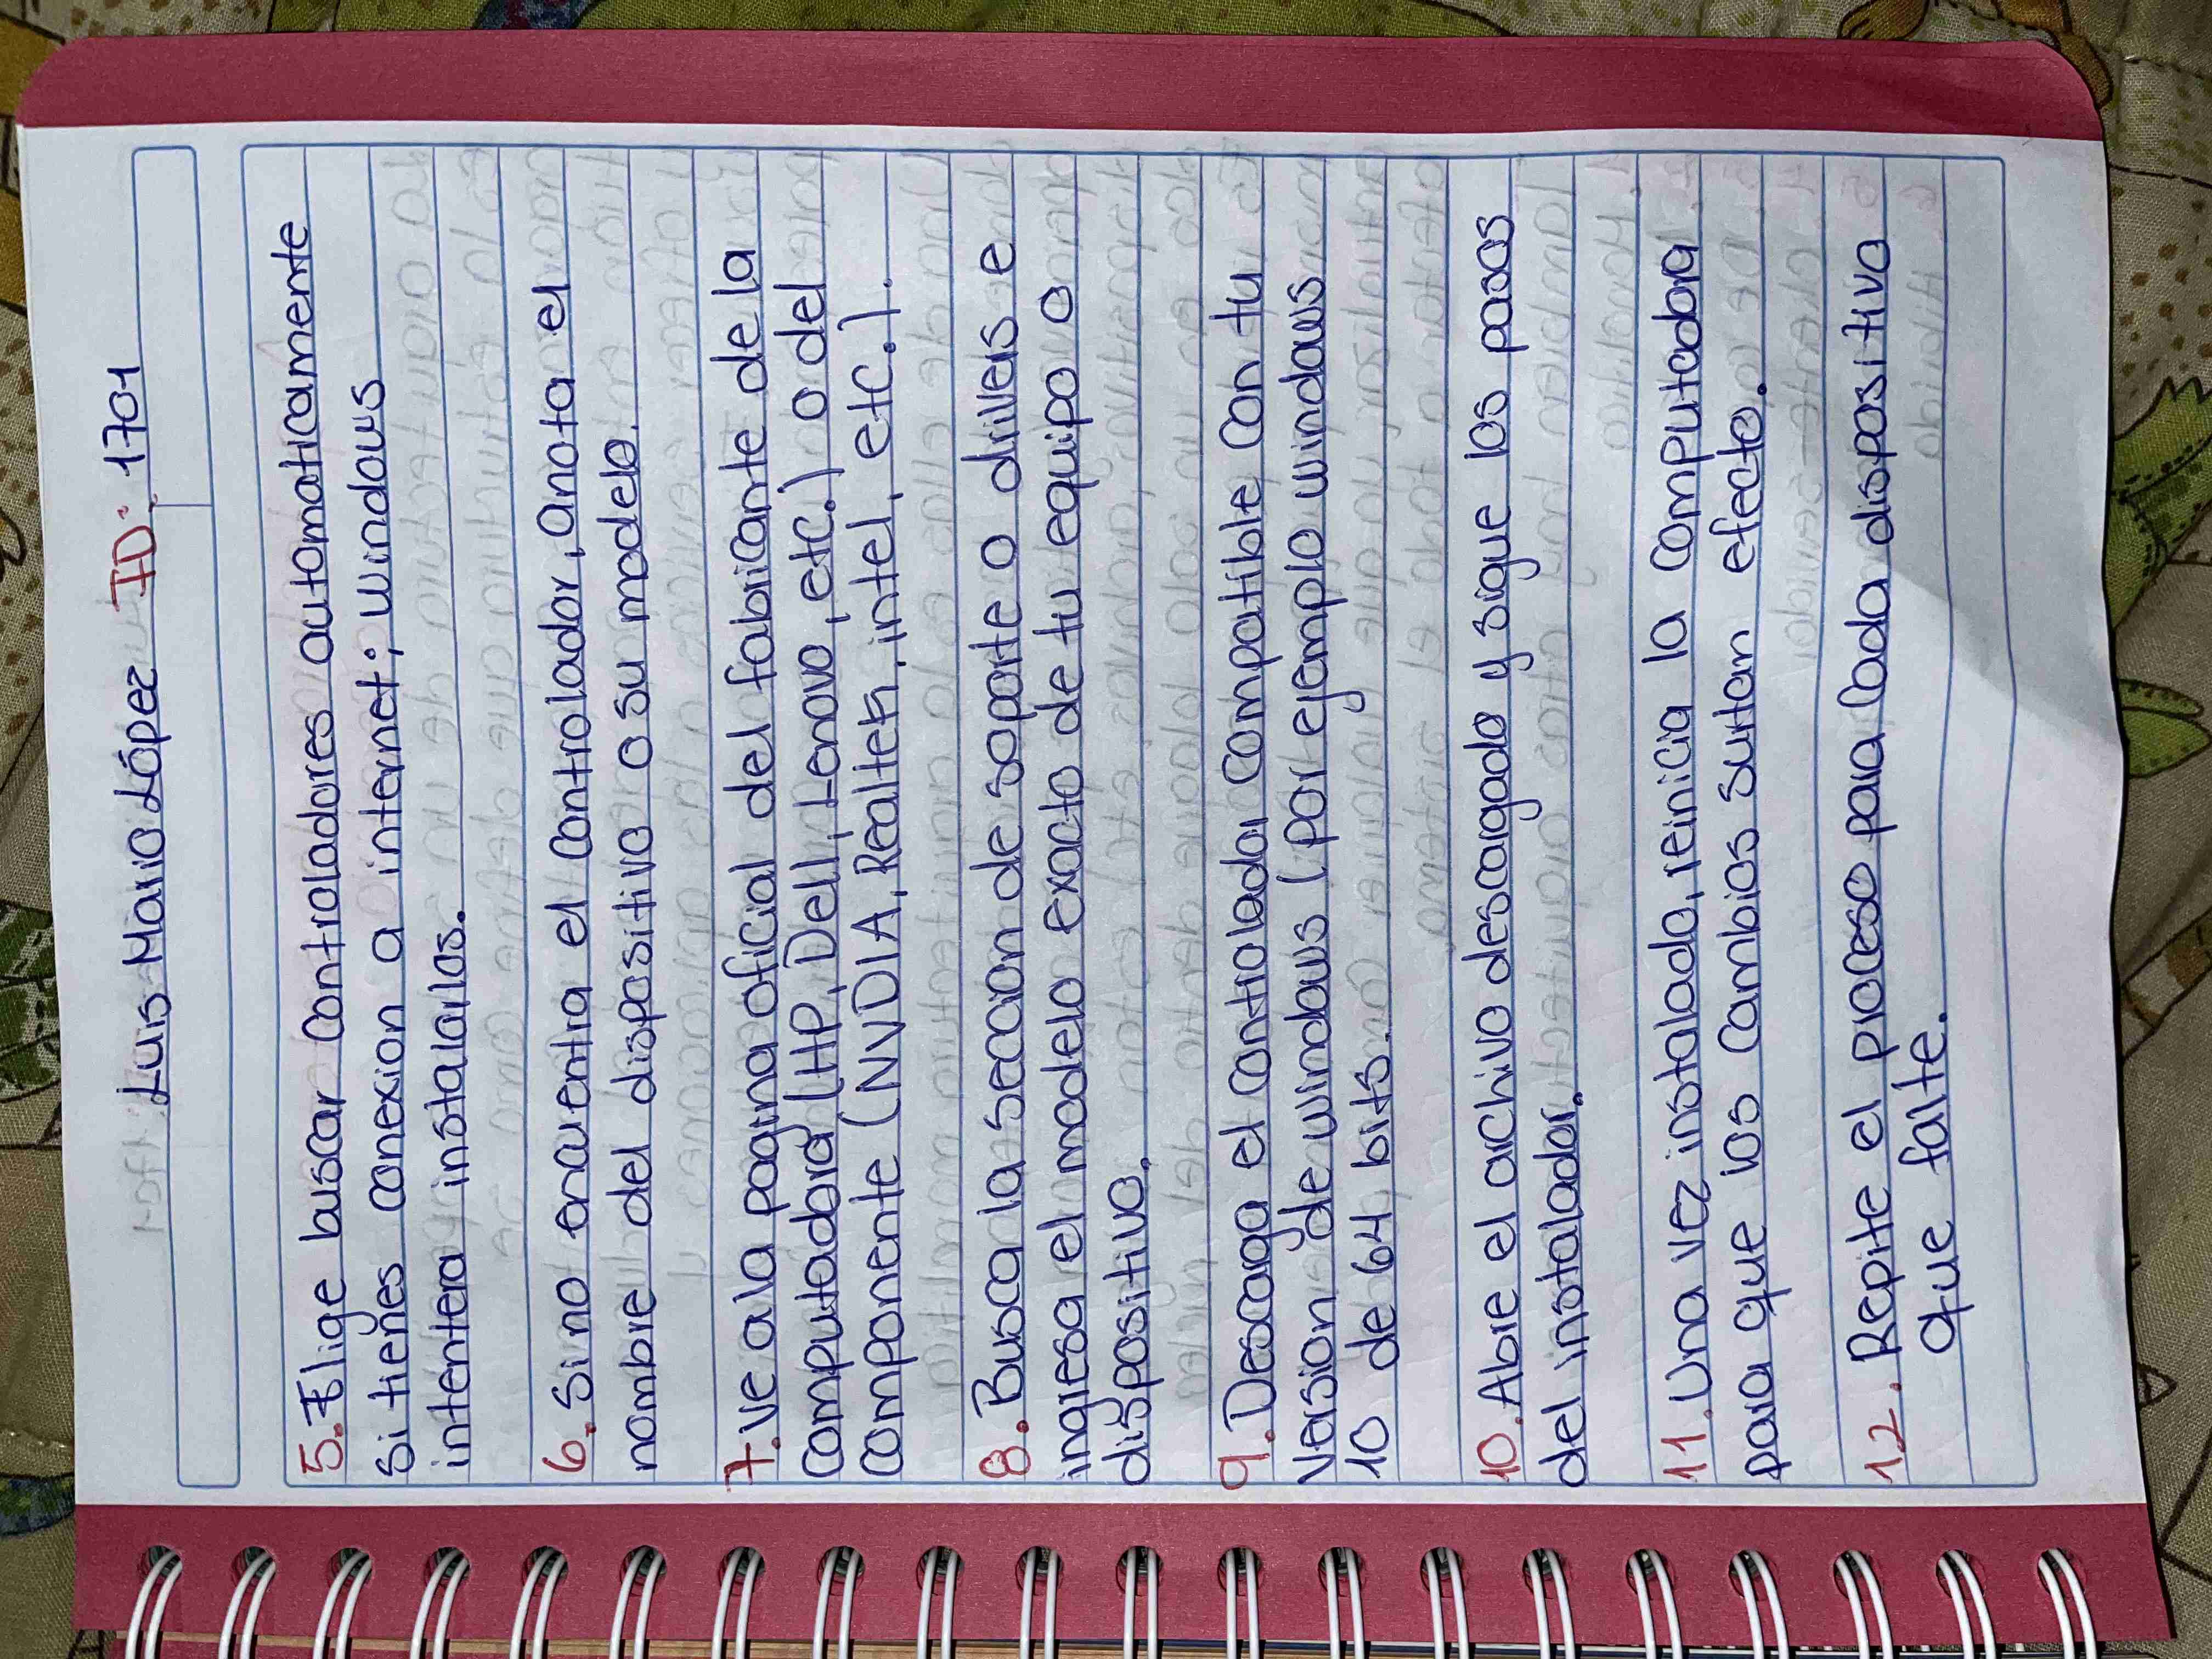 Luis Mario López ID: 1701
5. Elige buscar controladores automaticamente
si tienes conexion a internet; windows
intentera instalarlos.
6. Si no encuentra el controlador, anota el
nombre del dispositivo o su modelo.
7. Ve a la pagina oficial del fabricante de la
computadora (HP, Dell, Lenovo, etc.) o del
componente (NVDIA, Realtek, intel, etc.).
8. Busca la seccion de soporte o drivers e
ingresa el modelo exacto de tu equipo o
dispositivo.
9. Descarga el controlador compatible con tu
version de windows (por ejemplo windows
10 de 64 bits.
10. Abre el archivo descargado y sigue los pasos
del instalador.
11. Una vez instalado, reinicia la computadora
para que los cambios surtan efecto.
12. Repite el proceso para cada dispositivo
que falte.